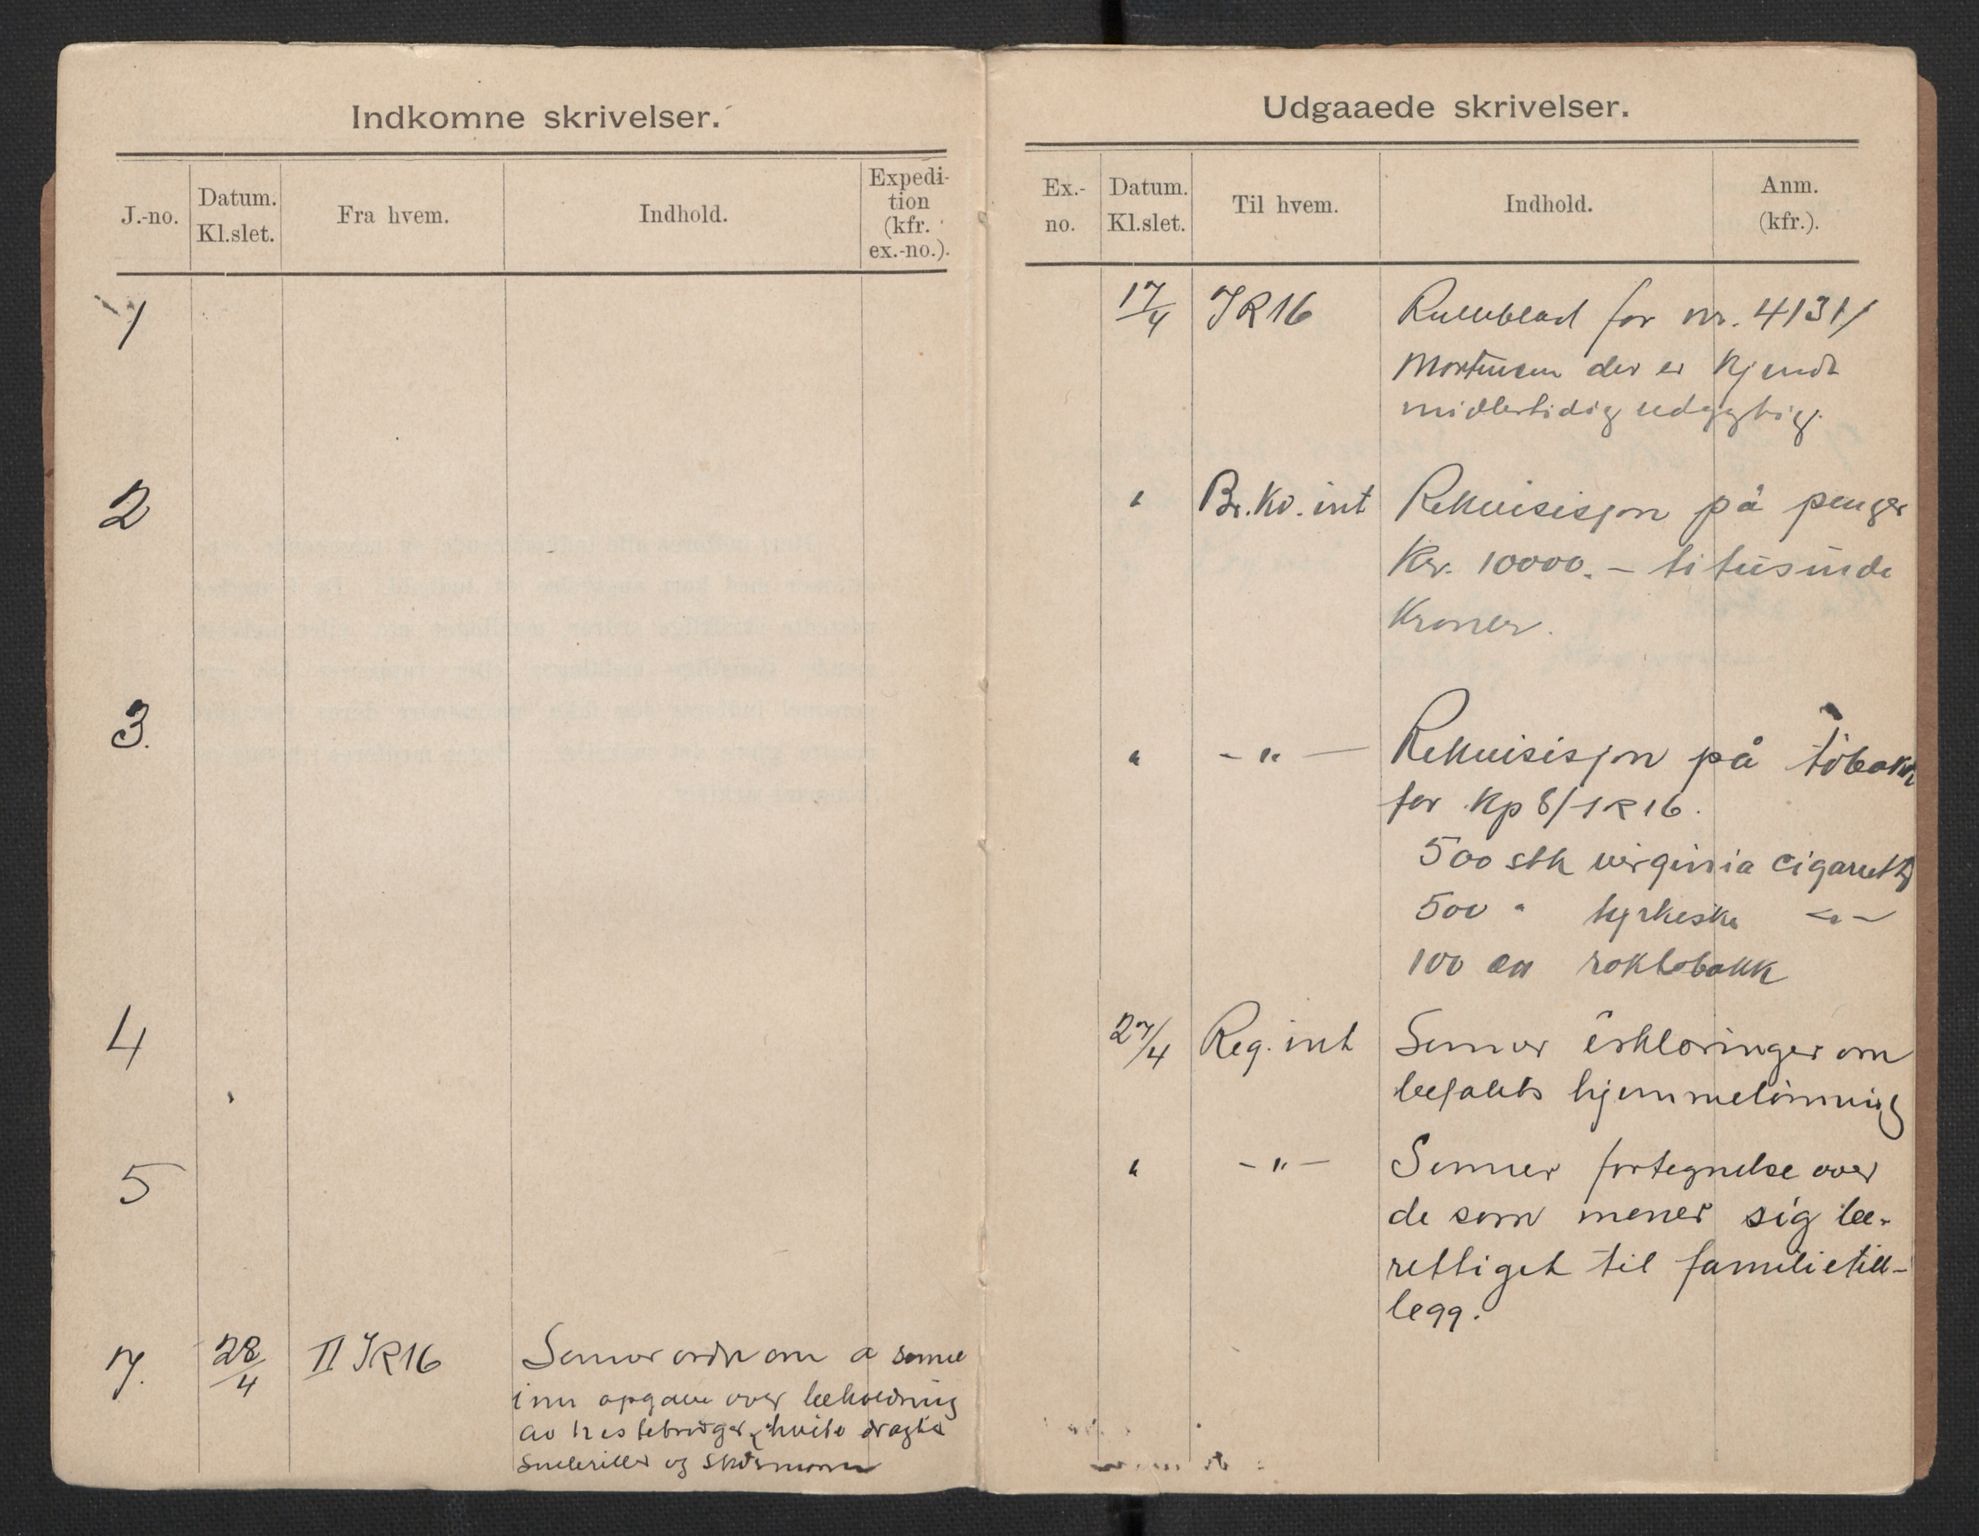 Indkomne skrivelser.
J.-no.
Datum.
Kl.slet.
Fra hvem.
Indhold.
Expedi-
tion
(kfr.
ex.-no.).
1
2
3.
4
5
7.
28/4
II IR16
Sender ordre om a sende
inn opgave over beholdning
av hestebrodder, hvite dragter
snebriller og skismøring
Udgaaede skrivelser.
Ex.-
no.
Datum.
Kl.slet.
Til hvem.
Indhold.
Anm.
(kfr.).
17/4
IR16
Rulleblad for nr. 4131/
Mortensen der er kjendt
midlertidig udygtig.
"
Br.Kv.int
Rekvisisjon på penger
Kr. 10000.- titusinde
Kroner.
"
- " -
Rekvisisjon på tobakk
for Kp 8/IR16.
500 stk virginia cigaretter
500 " tyrkiske - " -
100 esk røktobakk
27/4
Reg. int
Sender erklæringer om
befalets hjemmelønning
"
- " -
Sender fortegnelse over
de som mener sig be-
rettiget til familietill-
legg.